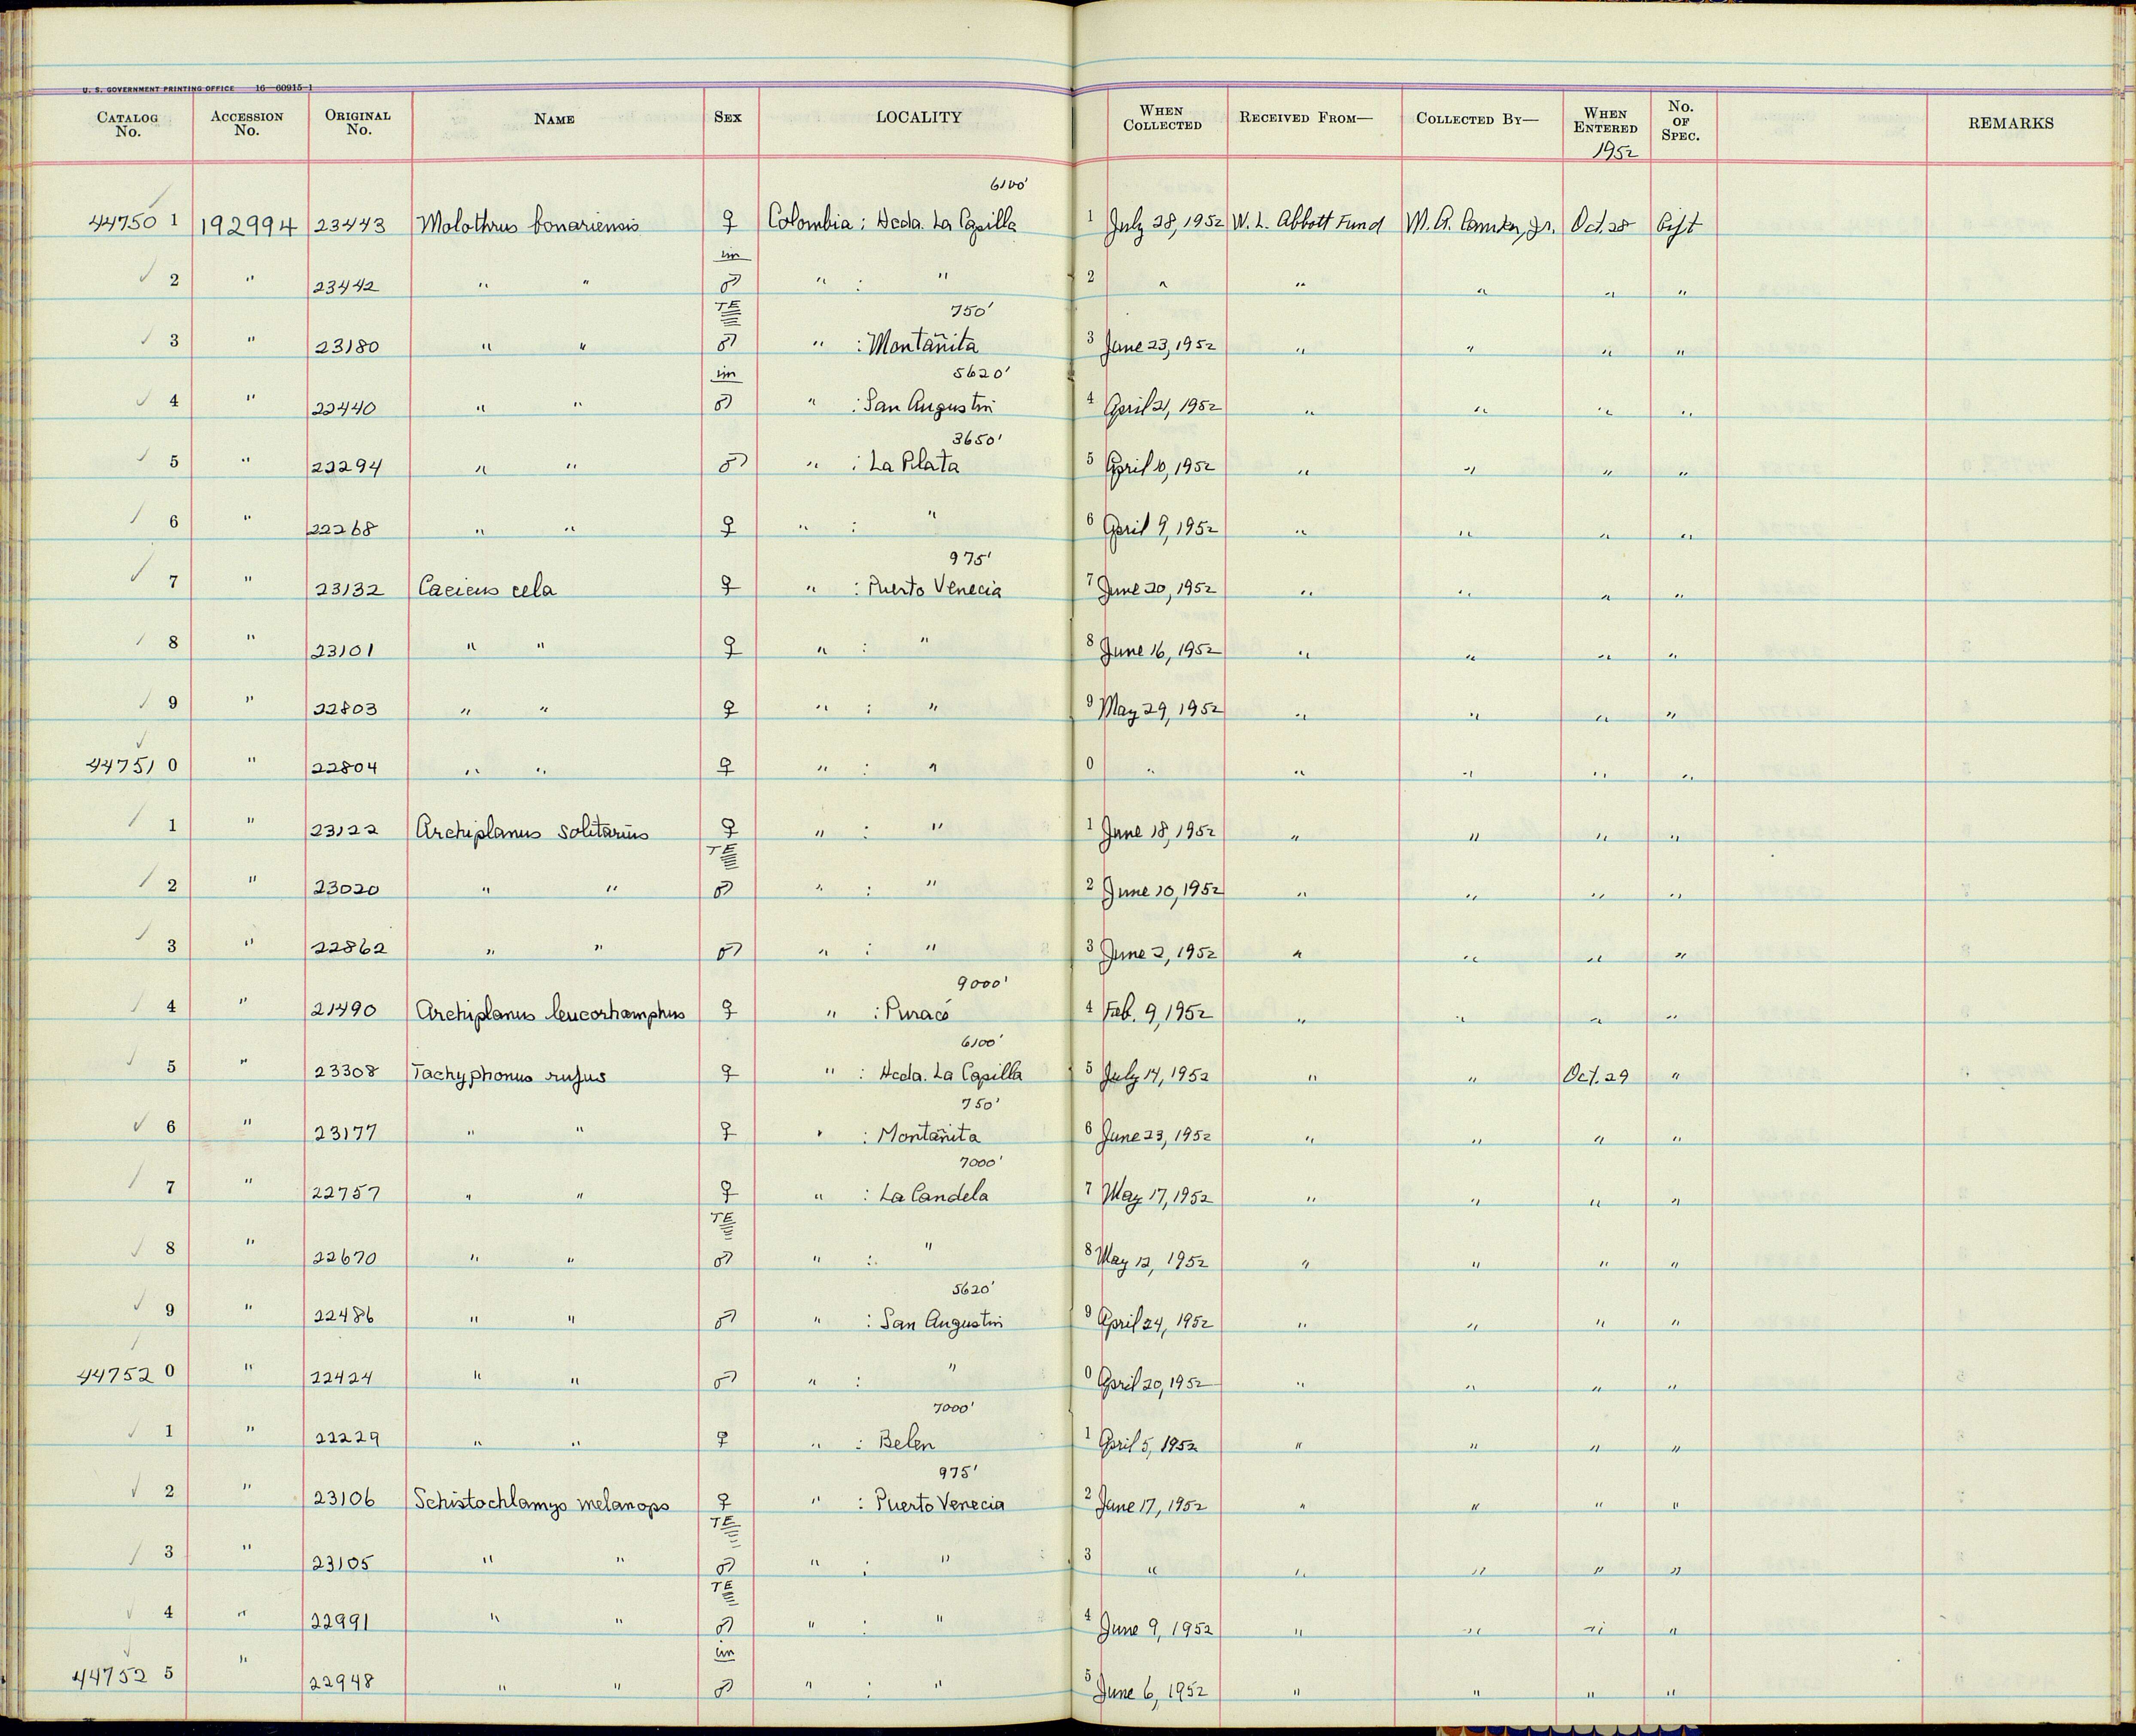 U. S. GOVERNMENT PRINTING OFFICE 16—60915-1
CATALOG No. ACCESSION No. ORIGINAL No. NAME SEX LOCALITY WHEN COLLECTED RECEIVED FROM— COLLECTED BY— WHEN ENTERED No. OF SPEC. REMARKS
1952
6100'
44750 1 192994 23443 Molothrus bonariensis ♀ Colombia : Hcda. La Capilla 1 July 28, 1952 W. L. Abbott Fund M. A. Carriker, Jr. Oct. 28 Gift
im
✓ 2 " 23442 " " ♂ " : " 2 " " " " "
TE 750'
✓ 3 " 23180 " " ♂ " : Montañita 3 June 23, 1952 " " " "
im 5620'
✓ 4 " 22440 " " ♂ " : San Augustin 4 April 21, 1952 " " " "
3650'
✓ 5 " 22294 " " ♂ " : La Plata 5 April 10, 1952 " " " "
✓ 6 " 22268 " " ♀ " : " 6 April 9, 1952 " " " "
975'
✓ 7 " 23132 Cacicus cela ♀ " : Puerto Venecia 7 June 20, 1952 " " " "
✓ 8 " 23101 " " ♀ " : " 8 June 16, 1952 " " " "
✓ 9 " 22803 " " ♀ " : " 9 May 29, 1952 " " " "
✓
44751 0 " 22804 " " ♀ " : " 0 " " " " "
✓ 1 " 23122 Archiplanus solitarius ♀ " : " 1 June 18, 1952 " " " "
TE
✓ 2 " 23020 " " ♂ " : " 2 June 10, 1952 " " " "
✓ 3 " 22862 " " ♂ " : " 3 June 2, 1952 " " " "
9000'
✓ 4 " 21490 Archiplanus leucorhamphus ♀ " : Puracé 4 Feb. 9, 1952 " " " "
6100'
✓ 5 " 23308 Tachyphonus rufus ♀ " : Hcda. La Capilla 5 July 14, 1952 " " Oct. 29 "
750'
✓ 6 " 23177 " " ♀ " : Montañita 6 June 23, 1952 " " " "
7000'
✓ 7 " 22757 " " ♀ " : La Candela 7 May 17, 1952 " " " "
TE
✓ 8 " 22670 " " ♂ " : " 8 May 12, 1952 " " " "
5620'
✓ 9 " 22486 " " ♂ " : San Augustin 9 April 24, 1952 " " " "
✓
44752 0 " 22424 " " ♂ " : " 0 April 20, 1952 " " " "
7000'
✓ 1 " 22229 " " ♀ " : Belen 1 April 5, 1952 " " " "
975'
✓ 2 " 23106 Schistochlamys melanops ♀ " : Puerto Venecia 2 June 17, 1952 " " " "
TE
✓ 3 " 23105 " " ♂ " : " 3 " " " " "
TE
✓ 4 " 22991 " " ♂ " : " 4 June 9, 1952 " " " "
✓ im
44752 5 " 22948 " " ♂ " : " 5 June 6, 1952 " " " "